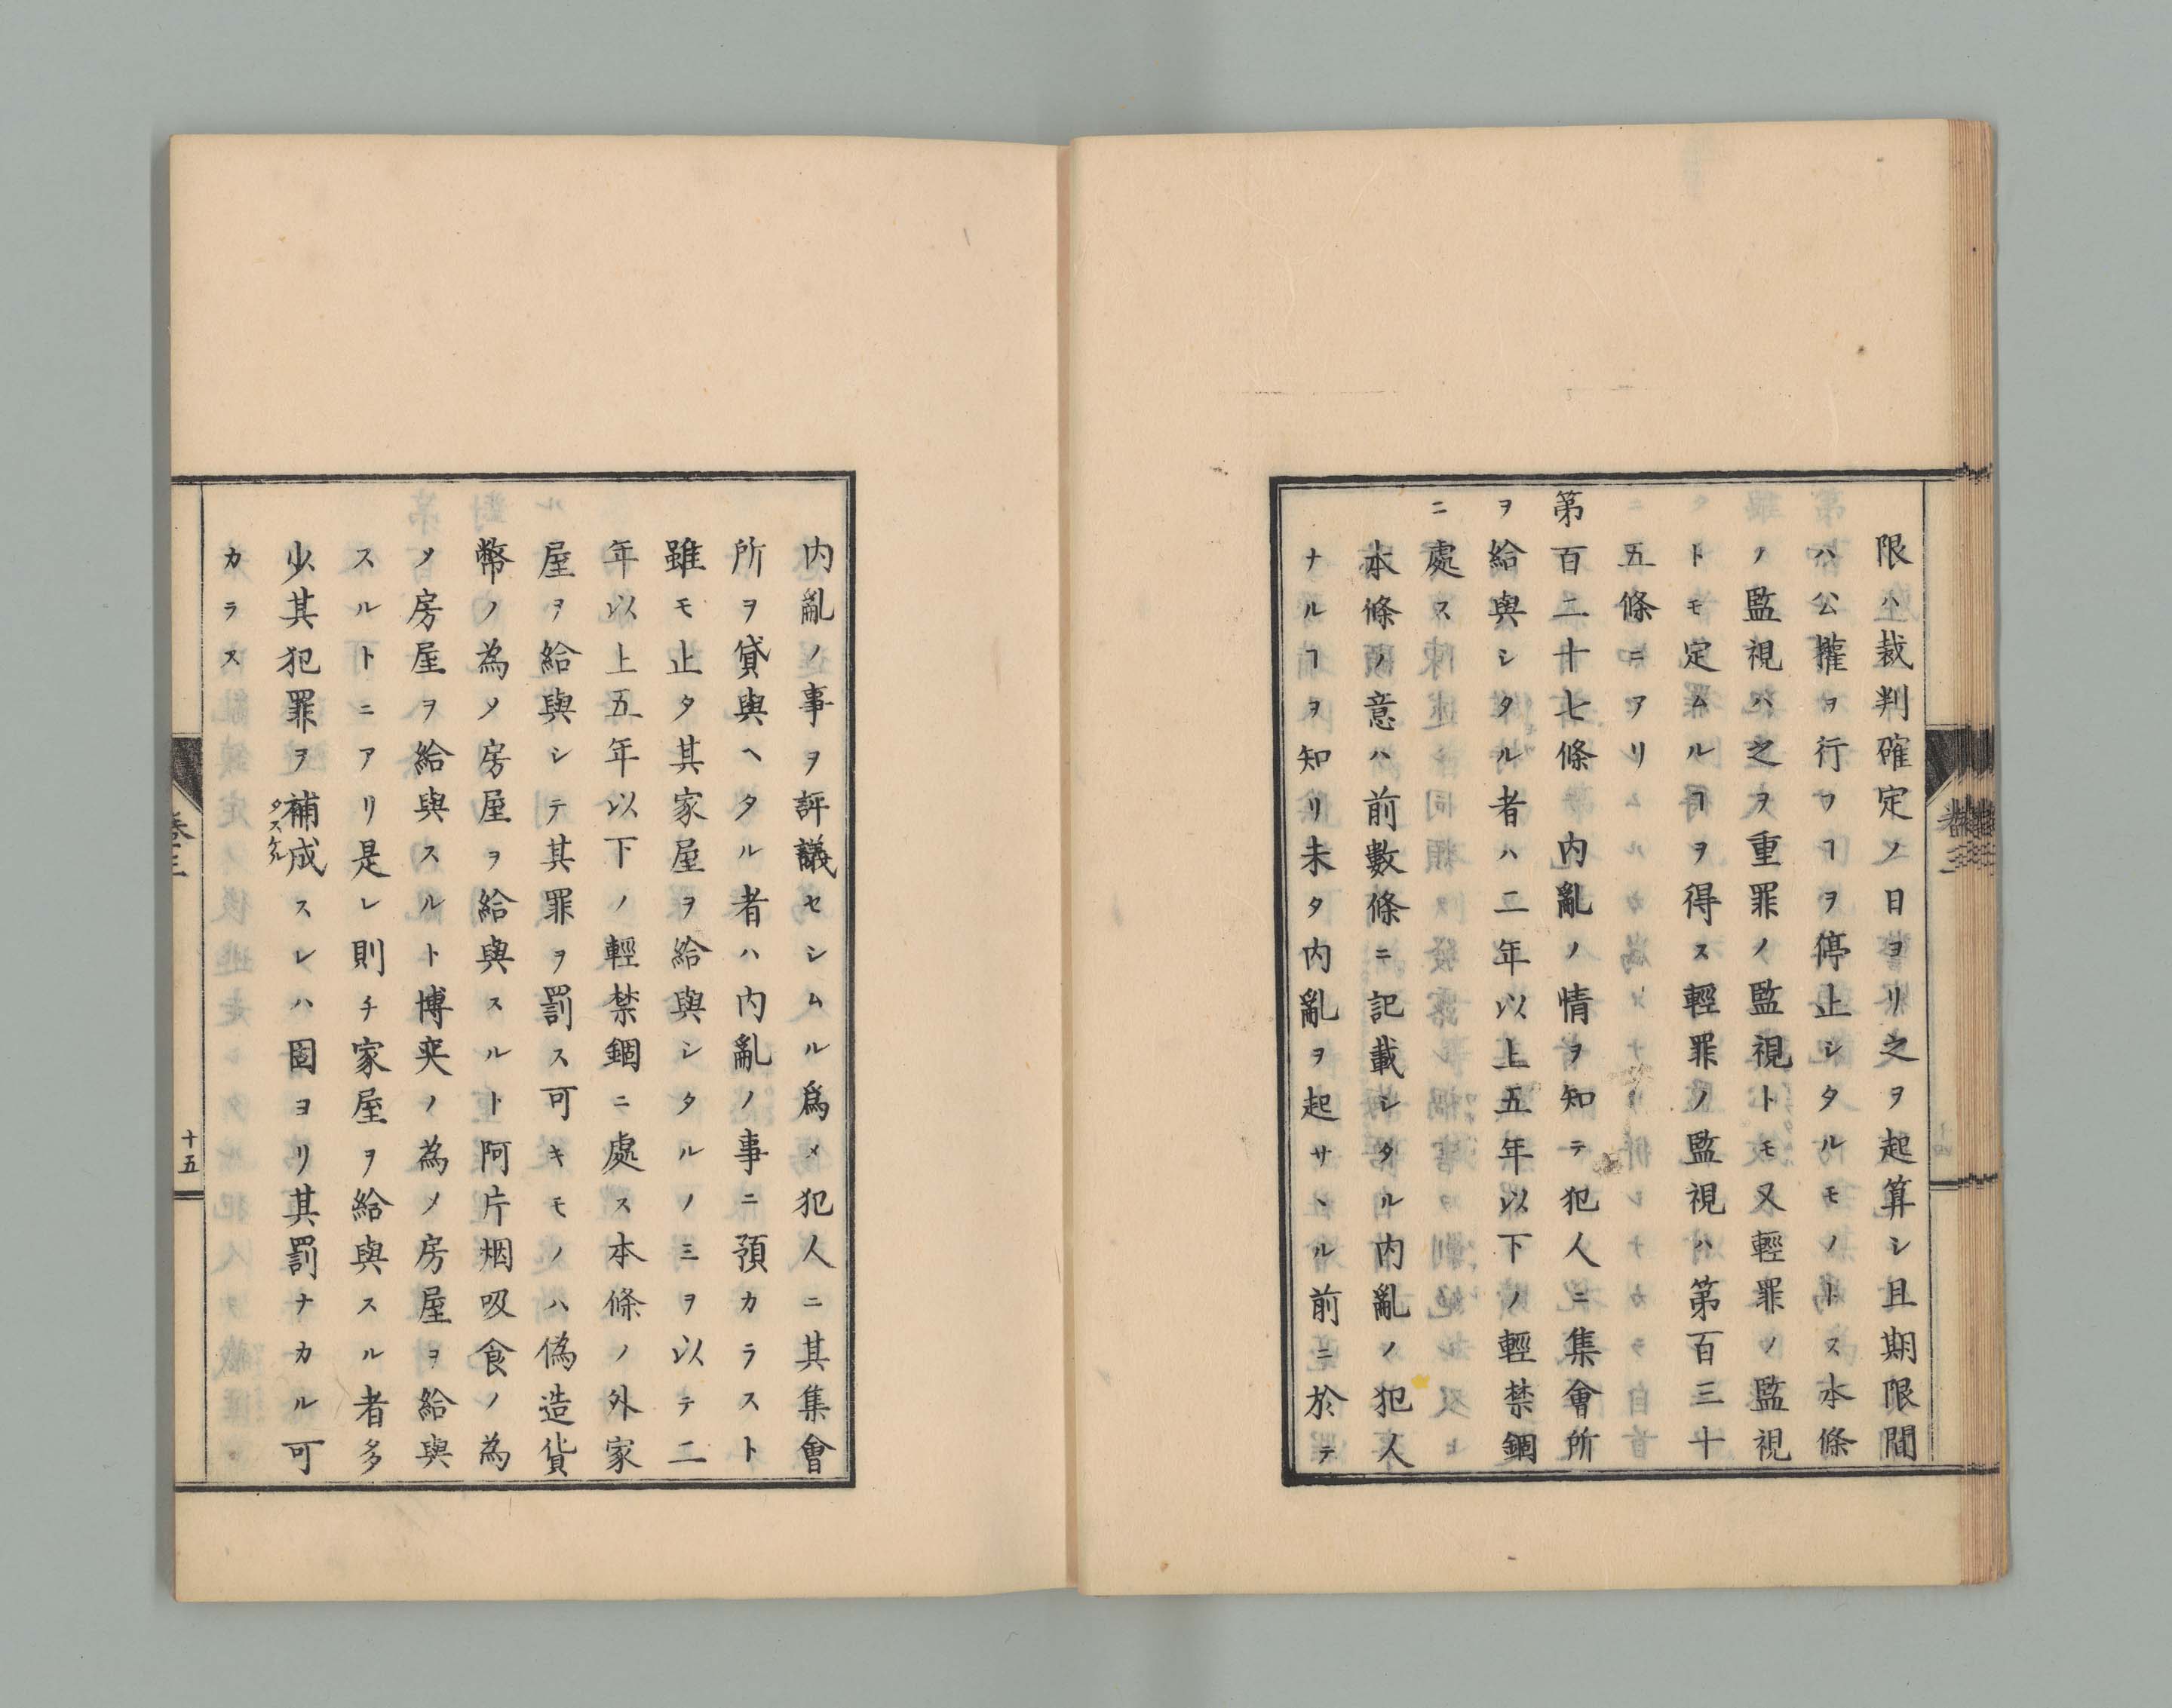 限ハ裁判確定ノ日ヨリ之ヲ起算シ且期限間
ハ公權ヲ行フヿヲ停止シタルモノトス本條
ノ監視ハ之ヲ重罪ノ監視トモ又輕罪ノ監視
トモ定ムルヿヲ得ス輕罪ノ監視ハ第百三十
五條ニアリ
第百二十七條 內亂ノ情ヲ知テ犯人ニ集會所
ヲ給與シタル者ハ二年以上五年以下ノ輕禁錮
ニ處ス
本條ノ意ハ前數條ニ記載シタル內亂ノ犯人
ナルヿヲ知リ未タ內亂ヲ起サヽル前ニ於テ
內亂ノ事ヲ評議セシムル爲メ犯人ニ其集會
所ヲ貸與ヘタル者ハ內亂ノ事ニ預カラスト
雖モ止タ其家屋ヲ給與シタルノミヲ以テ二
年以上五年以下ノ輕禁錮ニ處ス本條ノ外家
屋ヲ給與シテ其罪ヲ罰ス可キモノハ偽造貨
幣ノ為メ房屋ヲ給與スルト阿片烟吸食ノ為
メノ房屋ヲ給與スルト博奕ノ為メ房屋ヲ給與
スルトニアリ是レ則チ家屋ヲ給與スル者多
少其犯罪ヲ補成スレハ固ヨリ其罰ナカル可
タスケル
カラス
卷三
十五